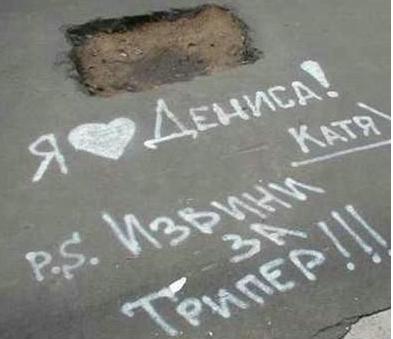 Я ♥ Дениса!
Катя
P.S. Извини
за
Трипер!!!